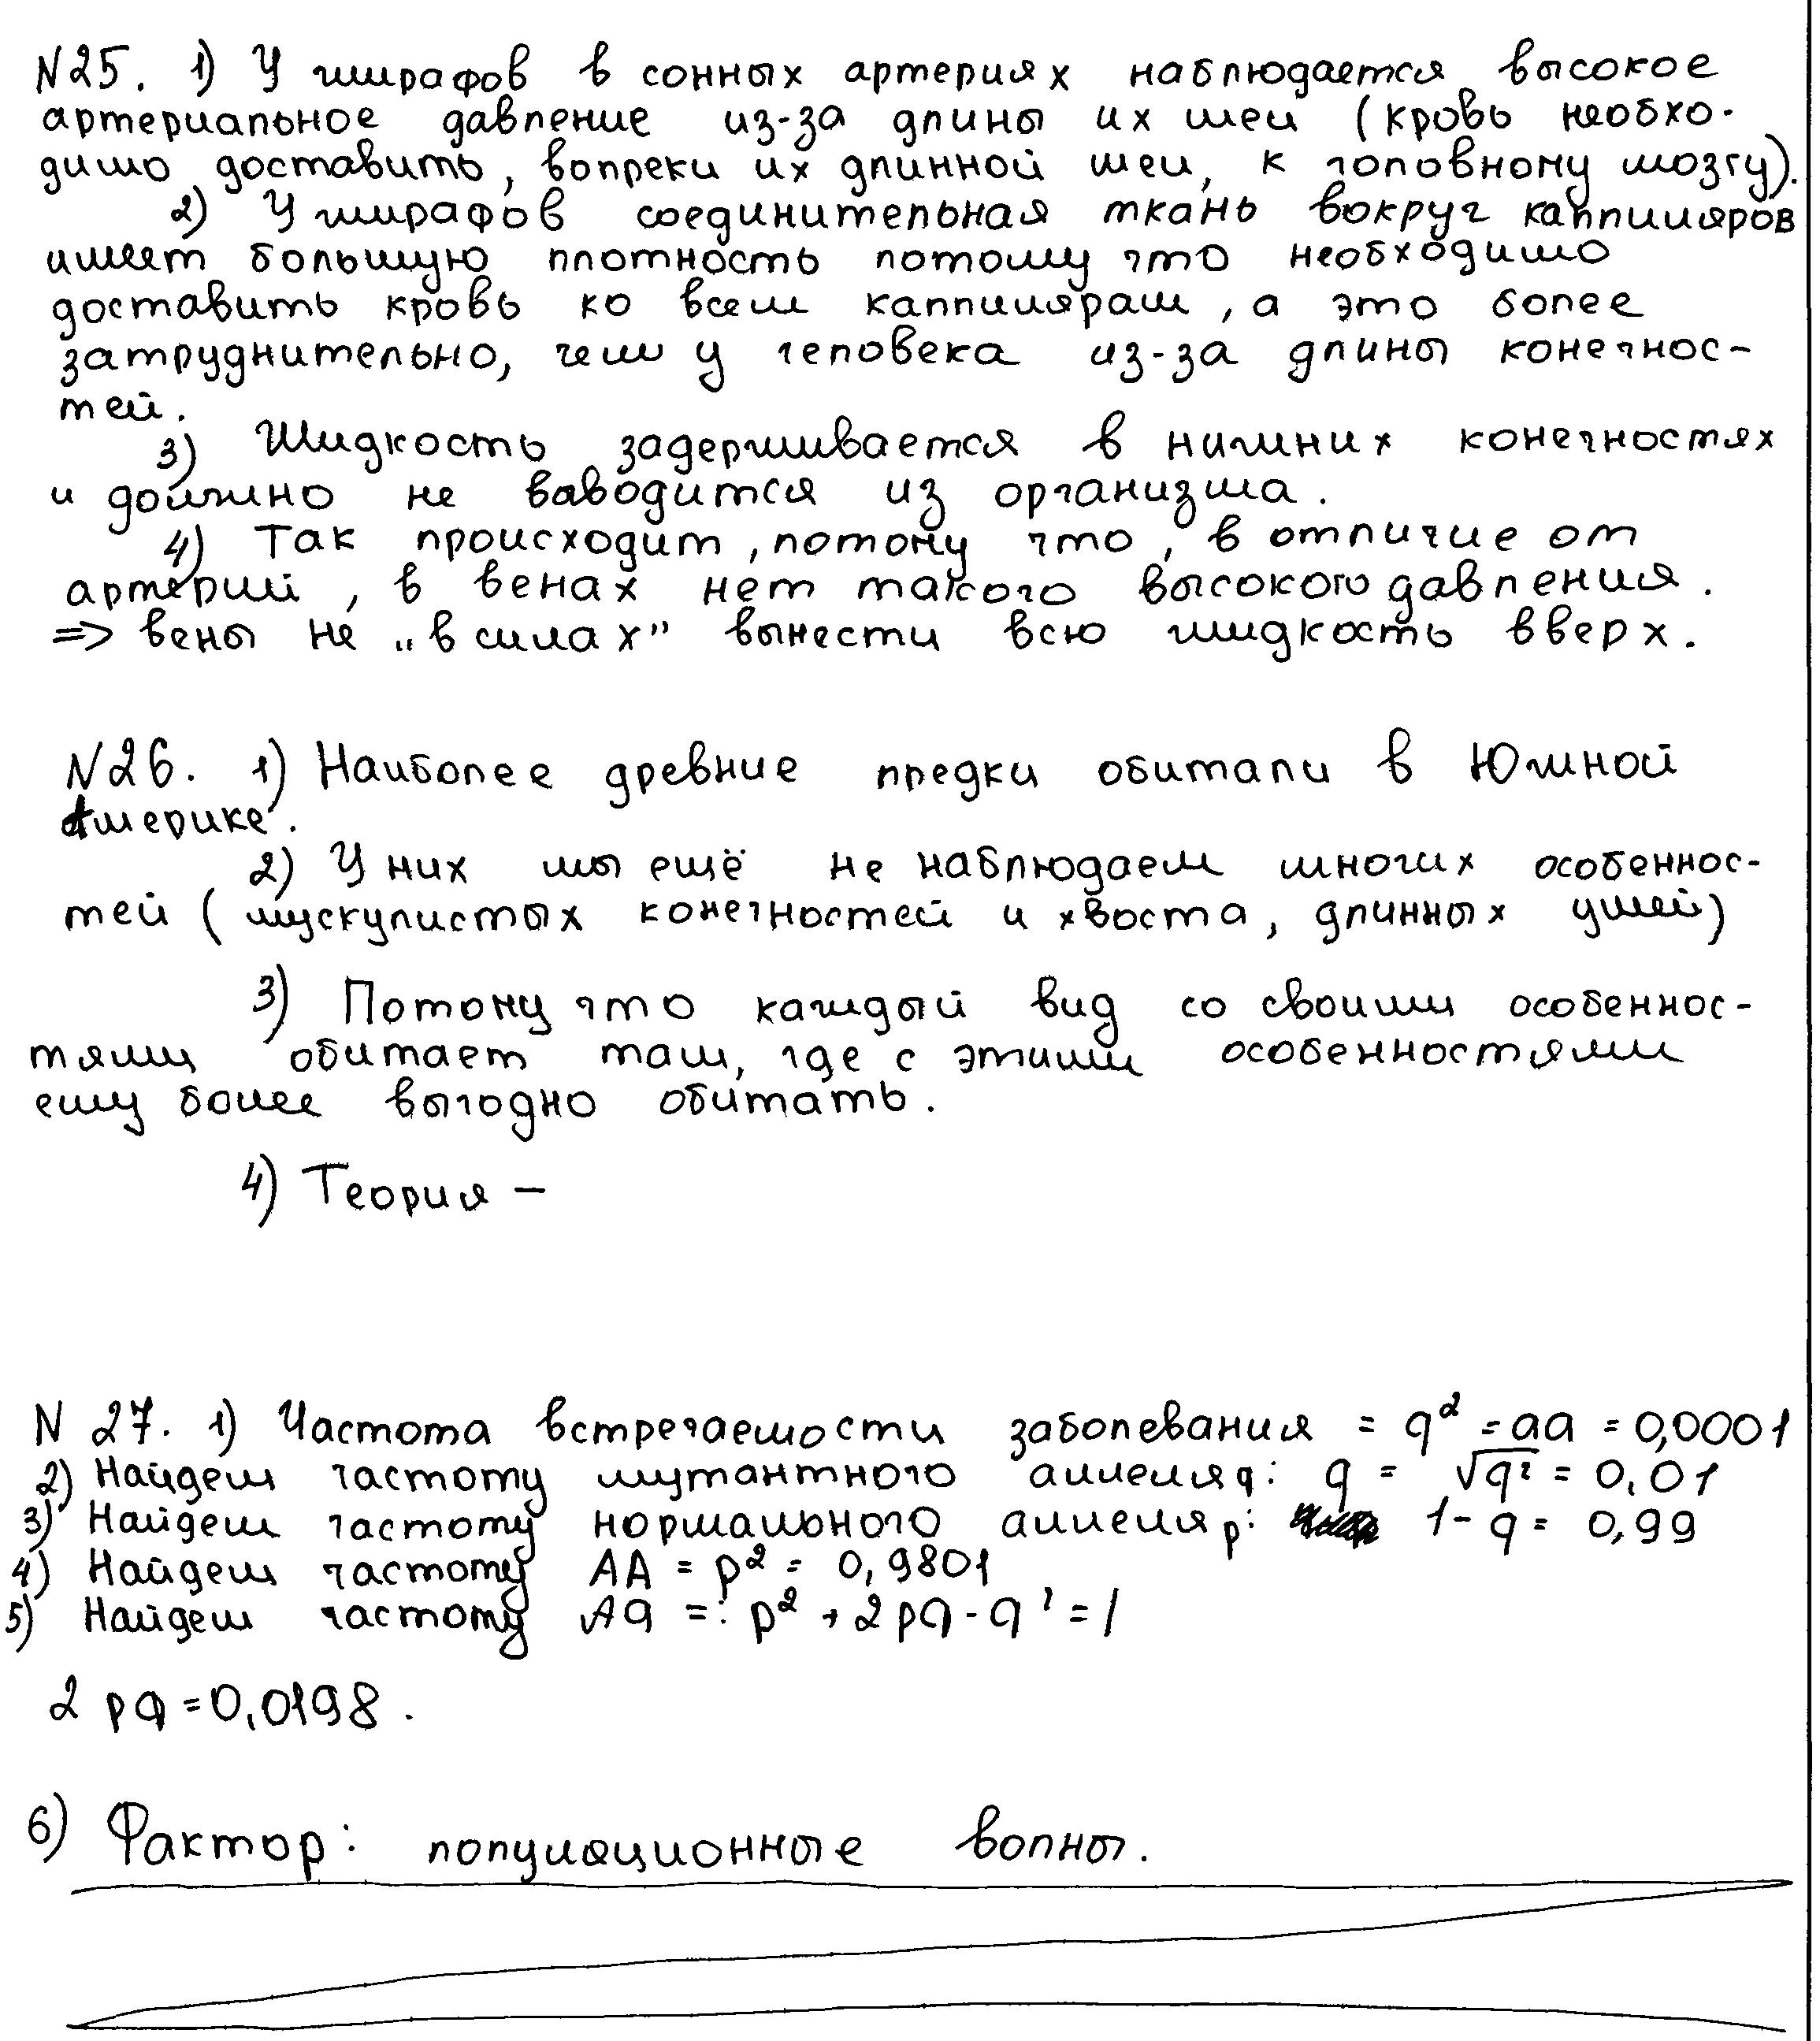 N25. 1) У жирафов в сонных артериях наблюдается высокое
артериальное давление из-за длины их шеи (кровь необхо-
димо доставить, вопреки их длинной шеи, к головному мозгу).
2) У жирафов соединительная ткань вокруг каппилляров
имеет большую плотность потому что необходимо
доставить кровь ко всем каппиллярам, а это более
затруднительно, чем у человека из-за длины конечнос-
тей.
3) Жидкость задерживается в нижних конечностях
и должно не ваводится из организма.
4) Так происходит, потому что, в отличие от
артерий, в венах нет такого высокого давления.
=> вены не „в силах” вынести всю жидкость вверх.
N26. 1) Наиболее древние предки обитали в Южной
Америке.
2) У них мы ещё не наблюдаем многих особеннос-
тей (мускулистых конечностей и хвоста, длинных ушей)
3) Потому что каждый вид со своими особеннос-
тями обитает там, где с этими особенностями
ему более выгодно обитать.
4) Теория –
N 27. 1) Частота встречаемости заболевания = q² = aa = 0,0001
2) Найдем частоту мутантного аллеля q: q = √q² = 0,01
3) Найдем частоту нормального аллеля p: 1 - q = 0,99
4) Найдем частоту AA = p² = 0,9801
5) Найдем частоту Aa =: p² + 2pq - q² = 1
2 pq = 0,0198.
6) Фактор: популяционные волны.